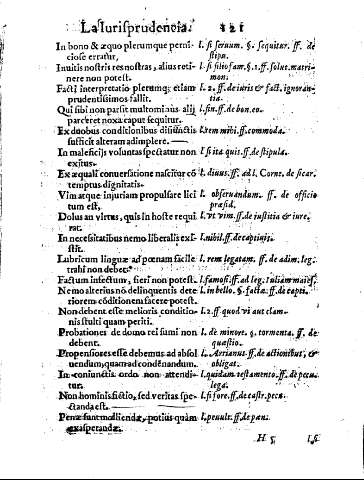 La Iurisprudencia. 121
In bono & æquo plerumque perni- l. si seruum. §. sequitur. ff. de
ciose erratur, stipu.
Inuitis nostris res nostras, alius reti- l. si filiofam. §. 1. ff. solut. matri-
nere non potest. mon.
Facti interpretatio plerumq; etiam l. 2. ff. de iuris & fact. ignoran-
prudentissimos fallit. tia.
Qui sibi non parsit multo minus alij l. fin. ff. de bon. eo.
parceret noxa caput sequitur.
Ex duobus conditionibus disiunctis l. rem mihi. ff. commoda.
sufficit alteram adimplere. —
In maleficijs voluntas spectatur non l. si ita quis. ff. de stipula.
exitus.
Ex æquali conuersatione nascitur cō l. diuus. ff. ad l. Corne. de sicar.
temptus dignitatis.
Vim atque iniuriam propulsare lici l. obseruandum. ff. de officio
tum est. præsid.
Dolus an virtus, quis in hoste requi l. vt vim. ff. de iustitia & iure,
rat.
In necessitatibus nemo liberalis exi- l. nihil. ff. de captiuis.
stit.
Lubricum linguæ ad pœnam facile l. rem legatam. ff. de adim. leg.
trahi non debet.
Factum infectum, fieri non potest. l. famosi. ff. ad leg. Iuliam maies.
Nemo alterius nō delinquentis dete l. in bello. §. factæ. ff. de capti.
riorem cōditionem facere potest.
Non debent esse melioris conditio- l. 2. ff. quod vi aut clam.
nis stulti quam periti.
Probationes de domo rei sumi non l. de minore. §. tormenta. ff. de
debent. quæstio.
Propensiores esse debemus ad absol l. Arrianus. ff. de actionibus, &
uendum, quam ad condēnandum. obligat.
In coniunctis ordo non attendi- l. quidam testamento. ff. de pecu.
tur. lega.
Non hominis fictio, sed veritas spe- l. si fore. ff. de castr. pecu.
ctanda est.
Pœnæ sunt molliendæ, potius quàm l. penult. ff. de pœn.
exasperandæ.
H 5